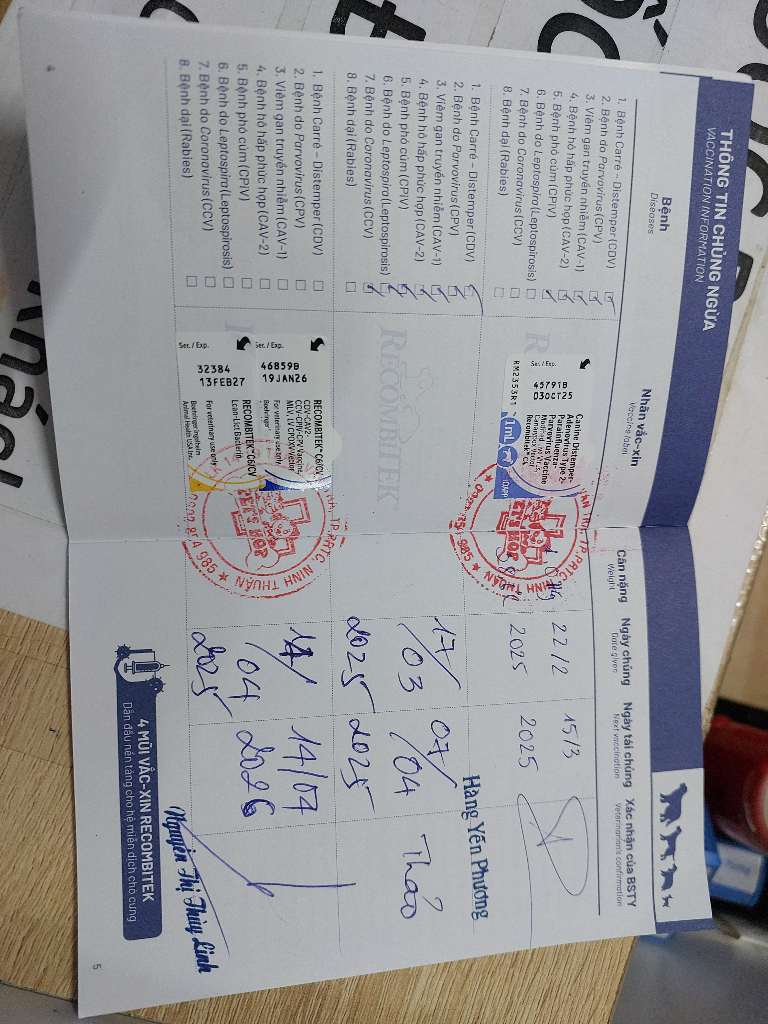 THÔNG TIN CHỦNG NGỪA
VACCINATION INFORMATION
Bệnh
Diseases
Nhãn vắc-xin
Vaccine label
Cân nặng
Weight
Ngày chủng
Date given
Ngày tái chủng
Next vaccination
Xác nhận của BSTY
Veterinarian's confirmation
1. Bệnh Carré – Distemper (CDV)
2. Bệnh do Parvovirus (CPV)
3. Viêm gan truyền nhiễm (CAV-1)
4. Bệnh hô hấp phức hợp (CAV-2)
5. Bệnh phó cúm (CPiV)
6. Bệnh do Leptospira (Leptospirosis)
7. Bệnh do Coronavirus (CCV)
8. Bệnh dại (Rabies)
Ser. / Exp.
45791B
03OCT25
RM2353R1
Canine Distemper-
Adenovirus Type 2-
Parainfluenza-
Parvovirus Vaccine
1mL
22/2
2025
15/3
2025
1. Bệnh Carré – Distemper (CDV)
2. Bệnh do Parvovirus (CPV)
3. Viêm gan truyền nhiễm (CAV-1)
4. Bệnh hô hấp phức hợp (CAV-2)
5. Bệnh phó cúm (CPiV)
6. Bệnh do Leptospira (Leptospirosis)
7. Bệnh do Coronavirus (CCV)
8. Bệnh dại (Rabies)
RECOMBITEK
17/
03
2025
07/
04
2025
Hàng Yến Phương
Thảo
1. Bệnh Carré – Distemper (CDV)
2. Bệnh do Parvovirus (CPV)
3. Viêm gan truyền nhiễm (CAV-1)
4. Bệnh hô hấp phức hợp (CAV-2)
5. Bệnh phó cúm (CPiV)
6. Bệnh do Leptospira (Leptospirosis)
7. Bệnh do Coronavirus (CCV)
8. Bệnh dại (Rabies)
Ser. / Exp.
46859B
19JAN26
RECOMBITEK C6/CV
For veterinary use only
Ser. / Exp.
32384
13FEB27
RECOMBITEK C6/CV
For veterinary use only
Boehringer Ingelheim
Animal Health USA Inc.
PET'S HOP
TP.PRTC, NINH THUẬN
14/
04
2025
14/04
2026
Nguyễn Thị Thùy Linh
4 MŨI VẮC-XIN RECOMBITEK
Dẫn đầu nền tảng cho hệ miễn dịch chó cưng
4
5